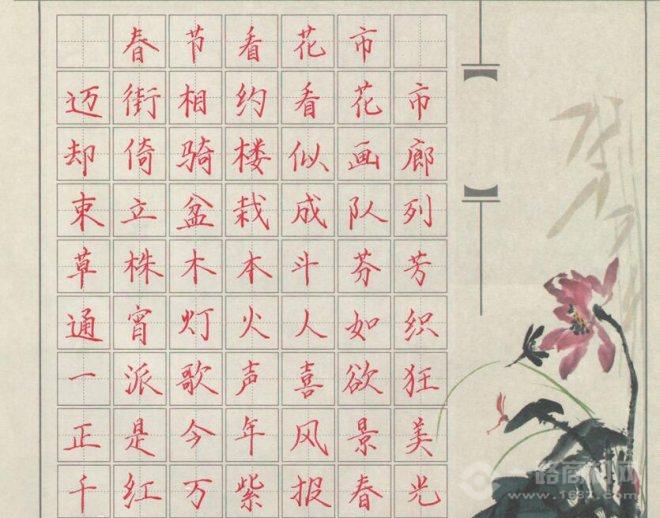 春节看花市
迈街相约看花市
却倚骑楼似画廊
束立盆栽成队列
草株木本斗芬芳
通宵灯火人如织
一派歌声喜欲狂
正是今年风景美
千红万紫报春光
一路商机网
www.1637.com